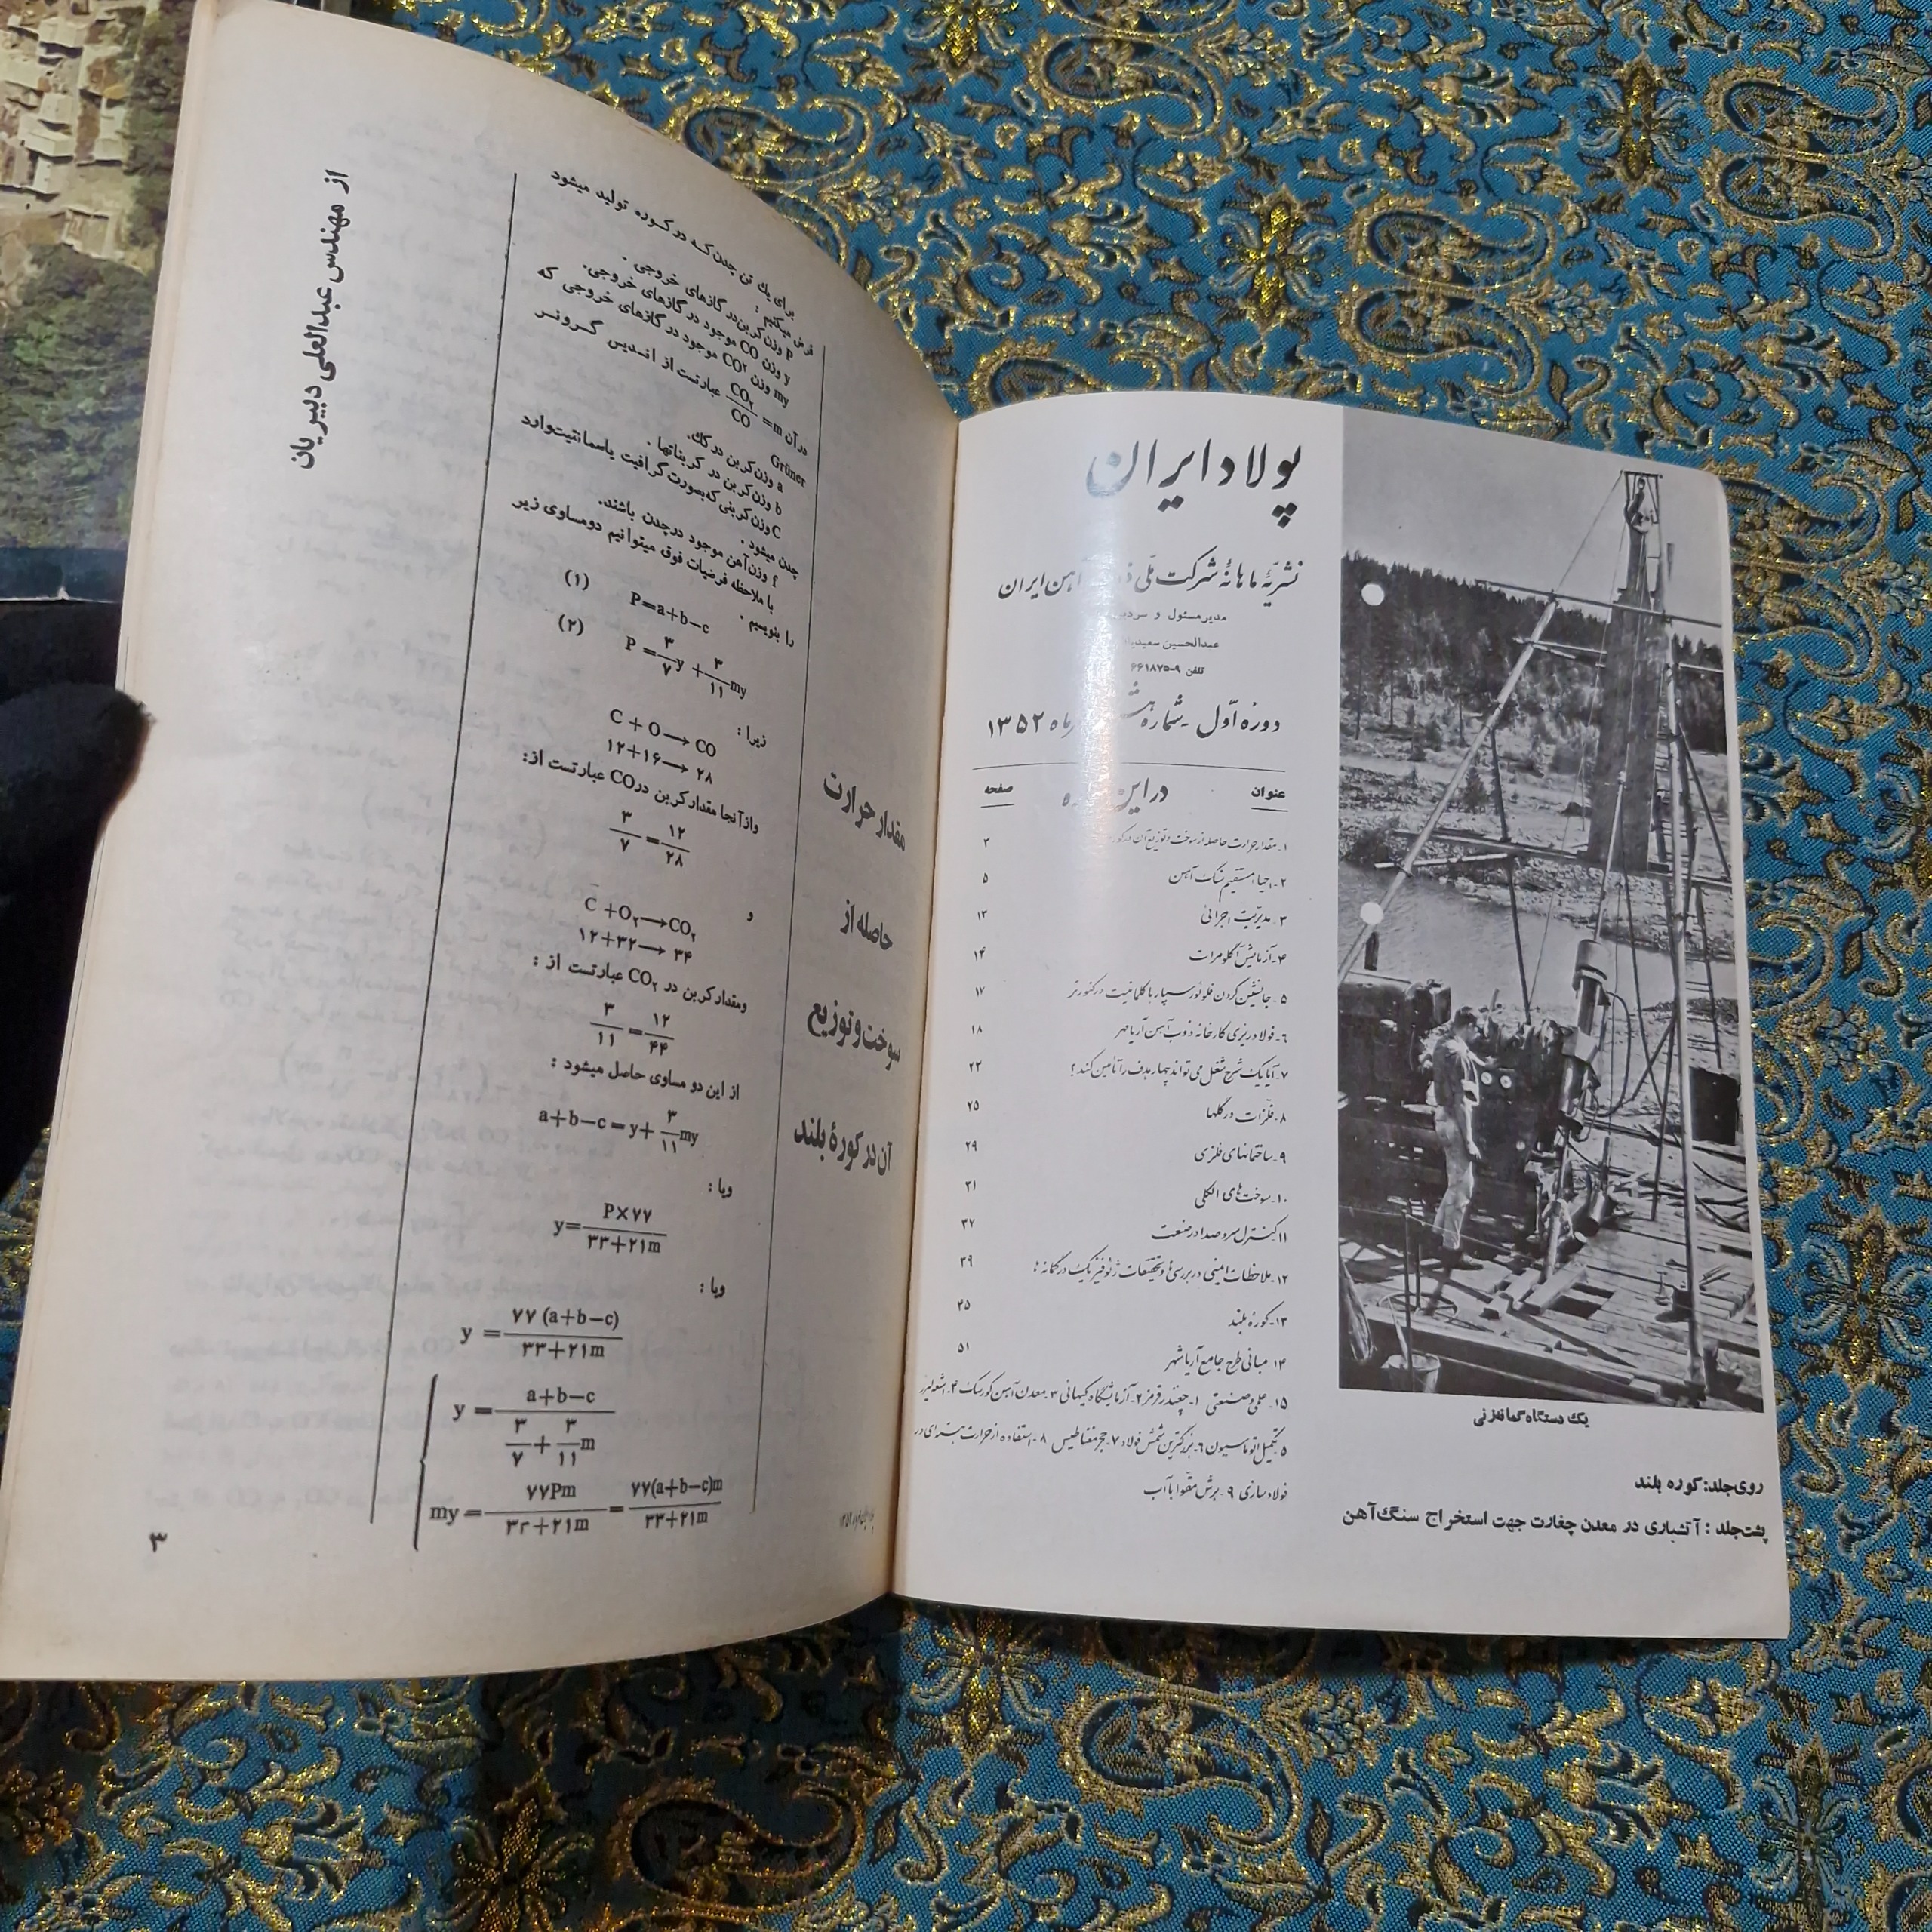 پولاد ایران
نشریهٔ ماهانهٔ شرکت ملی آهن ایران
مدیر مسئول و
عبدالحسین
تلفن ۹-۶۶۱۸۷۵
دورهٔ اوّل - شماره ماه ۱۳۵۲
عنوان در این صفحه
۱- مقدار حرارت حاصله از سوخت و توزیع آن در کوره ۲
۲- احیاء مستقیم سنگ آهن ۵
۳- مدیریت اجرائی ۱۳
۴- آزمایش آگلومرات ۱۴
۵- جانشین کردن فلوئورسپار با کلمانیت در کنورتر ۱۷
۶- فولادریزی کارخانه ذوب آهن آریامهر ۱۸
۷- آیا یک شرح شغل می تواند چهار هدف را تأمین کند؟ ۲۳
۸- فلزات در گلها ۲۵
۹- ساختمانهای فلزی ۲۹
۱۰- سوخت های الکلی ۳۱
۱۱- کنترل سر و صدا در صنعت ۳۷
۱۲- ملاحظات ایمنی در بررسی ها و تحقیقات ژئوفیزیک در گمانه ها ۳۹
۱۳- کورهٔ بلند ۴۵
۱۴- مبانی طرح جامع آریاشهر ۵۱
۱۵- علمی و صنعتی ۱- چغندر قرمز ۲- آزمایشگاه کیهانی ۳- معدن آهن کورسک ۴- اشعه لیزر
۵- تکمیل اتوماسیون ۶- بزرگترین شمش فولاد ۷- حجر مغناطیس ۸- استفاده از حرارت هسته ای در
فولادسازی ۹- برش مقوا با آب
یک دستگاه گمانه زنی
روی جلد: کوره بلند
پشت جلد: آتشباری در معدن چغارت جهت استخراج سنگ آهن
مقدار حرارت
حاصله از
سوخت و توزیع
آن در کورهٔ بلند
برای یك تن چدن که در کوره تولید میشود
فرض میکنیم :
P وزن کربن در گازهای خروجی .
y وزن CO موجود در گازهای خروجی.
my وزن CO۲ موجود در گازهای خروجی که
در آن m=CO۲/CO عبارتست از اندیس گرونر
Grüner
a وزن کربن در کك.
b وزن کربن در کربناتها .
C وزن کربنی که بصورت گرافیت یا سمانتیت وارد
چدن میشود .
f وزن آهن موجود در چدن باشند.
با ملاحظه فرضیات فوق میتوانیم دو مساوی زیر
را بنویسیم .
P=a+b−c (۱)
P=۳/۷ y+۳/۱۱ my (۲)
زیرا :
C+O⟶CO
۱۲+۱۶⟶۲۸
و از آنجا مقدار کربن در CO عبارتست از:
۳/۷=۱۲/۲۸
و
C+O۲⟶CO۲
۱۲+۳۲⟶۳۴
و مقدار کربن در CO۲ عبارتست از :
۳/۱۱=۱۲/۴۴
از این دو مساوی حاصل میشود :
a+b−c=y+۳/۱۱ my
و یا :
y=P×۷۷/۳۳+۲۱m
و یا :
y=۷۷(a+b−c)/۳۳+۲۱m
y=a+b−c/۳/۷+۳/۱۱ m
my=۷۷Pm/۳۳+۲۱m=۷۷(a+b−c)m/۳۳+۲۱m
از مهندس عبدالعلی دبیریان
۳